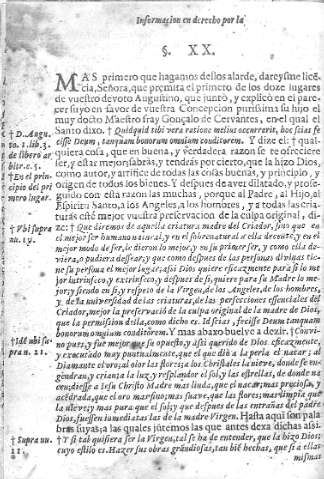 Informacion en derecho por la
§. XX.
MAS primero que hagamos dellos alarde, dareysme licē
cia, Señora, que premita el primero de los doze lugares
de vuestro devoto Augustino, que juntò, y explicò en el pare-
cer suyo en favor de vuestra Concepcion purissima su hijo el
muy docto Maestro fray Gonçalo de Cervantes, en el qual el
Santo dixo. † Quidquid tibi vera ratione melius occurrerit, hoc scias fe
cisse Deum, tanquam bonorum omnium conditorem. Y dize el: † qual-
quiera cosa, que en buena, y verdadera razon se te ofrecie-
re, y estar mejor, sabràs, y tendràs por cierto, que la hizo Dios,
como autor, y artifice de todas las cosas buenas, y principio, y
origen de todos los bienes. Y despues de aver dilatado, y prosi-
guido con ella razon las muchas, porque al Padre, al Hijo, al
Espiritu Santo, a los Angeles, a los hombres, y a todas las cria-
turas estè mejor vuestra preservacion de la culpa original, di-
ze: † Que diremos de aquella criatura madre del Criador, sino que en
el mejor ser humano natural, y en el sobrenatural a ella devido, y en el
mejor modo de ser, le dieron lo mejor, y en su primer ser, y como ella de-
viera, o pudiera dessear, y que como despues de las personas divinas tie-
ne su persona el mejor lugar; assi Dios quiere eficazmente para si lo me
jor intrinseco, y extrinseco, y despues de si, quiere para su Madre lo me-
jor, y siendo en si, y respeto de la Virgen, de los Angeles, de los hombres,
y de la universidad de las criaturas, de las perfecciones essenciales del
Criador, mejor la preservacion de la culpa original de la madre de Dios,
que la permission della, como dicho es. Id scias, fecisse Deum tanquam
bonorum omnium conditorem. Y mas abaxo buelve a dezir. † Convi-
no pues, y fue mejor que su opuesto, y assi querido de Dios eficazmente,
y executado muy puntualmente, que el que diò a la perla el nacar; al
Diamante el vraçal olor las flores; a los Christales la nieve, donde se en-
gendran, y criança la luz, y resplandor el sol, y las estrellas, de donde na-
cen; diesse a Iesu Christo Madre mas linda, que el nacar; mas preciosa, y
acédrada, que el oro marino; mas suave, que las flores; mas limpia que
la nieve; y mas pura que el sol; y que despues de las entrañas del padre
Dios, fuessen inmediatas las de la madre Virgen. Hasta aqui son pala
bras suyas; a las quales jutemos las que antes dexa dichas assi.
† Y si tal quisiera ser la Virgen, tal se ha de entender, que la hizo Dios;
cuyo estilo es. Hazer sus obras grandiosas, tan bié hechas, que ellas
mismas
† D. Augu.
to. 1. lib. 3.
de libero ar
bitr. c. 5.
† En el prin
cipio del pri
mero lugar.
† Vbi supra
nu. 19.
† Idē ubi su-
pra n. 21.
† Supra nu.
22.